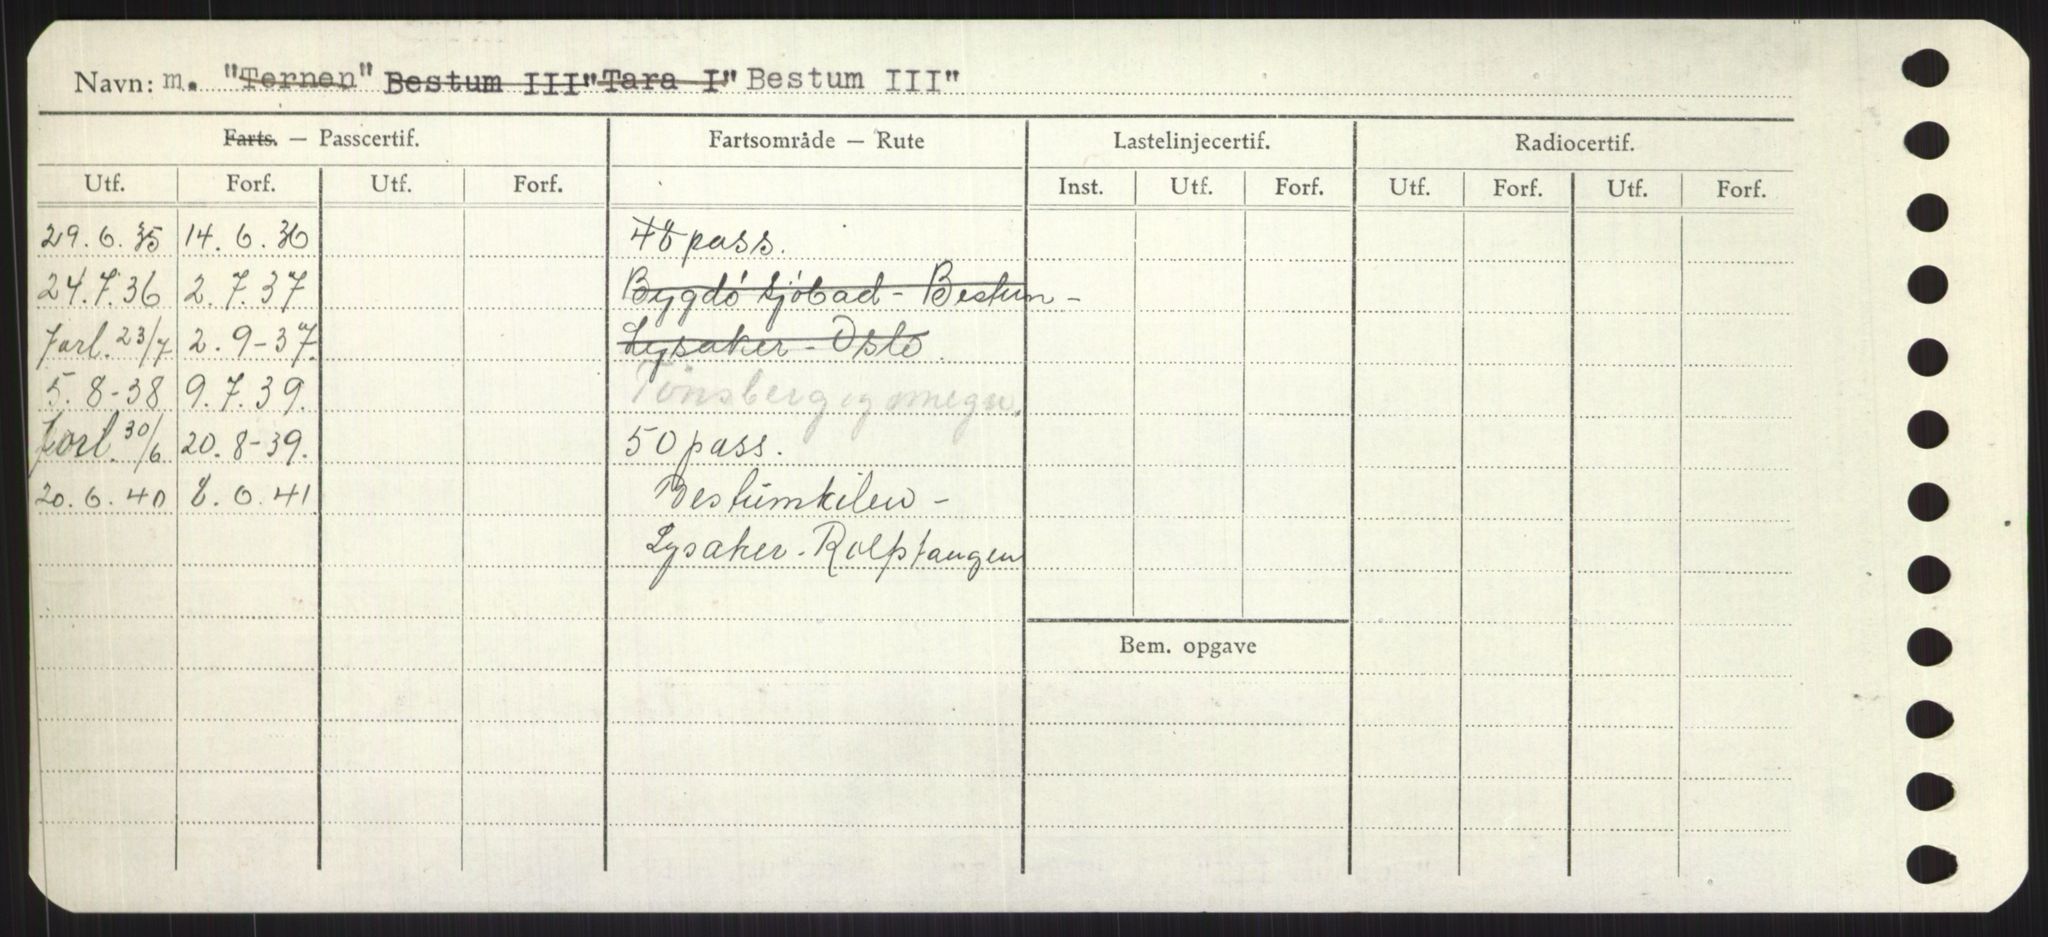 Navn: m. "Ternen" Bestum III" Tara I" Bestum III"
Farts. — Passcertif. Fartsområde — Rute Lastelinjecertif. Radiocertif.
Utf. Forf. Utf. Forf. Inst. Utf. Forf. Utf. Forf. Utf. Forf.
29.6.35 14.6.36 48 pass.
24.7.36 2.7.37 Bygdö sjöbad - Bestum -
Forl. 23/7 2.9-37. Lysaker - Oslo
5.8-38 9.7.39. Tønsberg og omegn.
Forl. 30/6 20.8-39. 50 pass.
20.6.40 8.6.41 Bestumkilen -
Lysaker - Rolfstangen
Bem. opgave